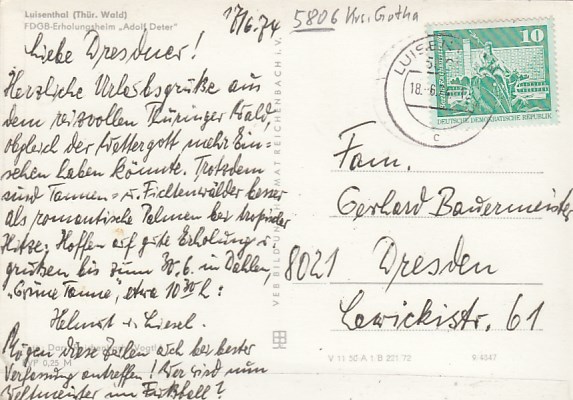 Luisenthal (Thür. Wald)
FDGB-Erholungsheim „Adolf Deter"
17/6.74
5806 Krs. Gotha
Liebe Dresdner!
Herzliche Urlaubsgrüße aus
dem reizvollen Thüringer Wald,
obgleich der Wettergott mehr Ein-
sehen haben könnte. Trotzdem
sind Tannen- u. Fichtenwälder besser
als romantische Palmen bei tropischer
Hitze. Hoffen auf gute Erholung u.
grüßen bis zum 30.6. in Dahlen,
„Grüne Tanne", etwa 10 30 h:
Helmut u. Liesel.
Mögen diese Zeilen Euch bei bester
Verfassung antreffen! Wer wird nun
Weltmeister im Fußball?
VEB BILD UND HEIMAT REICHENBACH i. V.
LUISEN
18.-6.
c
10
DEUTSCHE DEMOKRATISCHE REPUBLIK
Fam.
Gerhard Bauermeister
8021 Dresden
Lewickistr. 61
0,25 M
V 11 50 A 1 B 221/72
9/4347